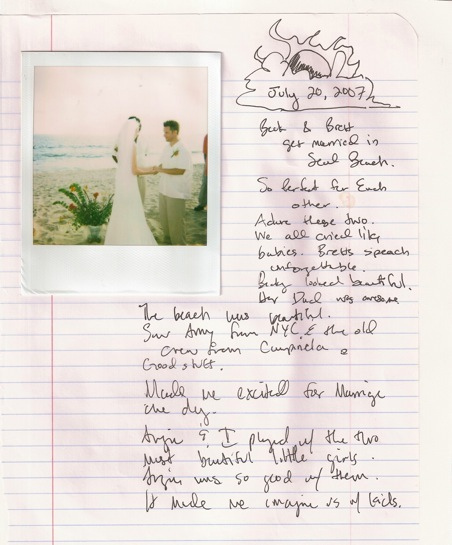 July 20, 2007
Beck & Brett
get married in
Seal Beach.
So Perfect for Each
other.
Adore these two.
We all cried like
babies. Bretts speach
unforgettable.
Becky looked beautiful.
Her Dad was awesome
The beach was beautiful.
Saw Amy from NYC & the old
crew from
Good stuff.
Made me excited for Marriage
one day.
& I played w/ the two
most beautiful little girls.
was so good w/ them.
It made me imagine us w/ kids.